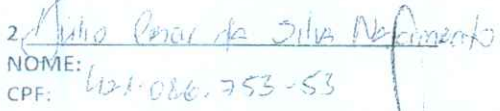 2. Júlio Cesar da Silva Nascimento
NOME:
CPF: 421.086.753-53